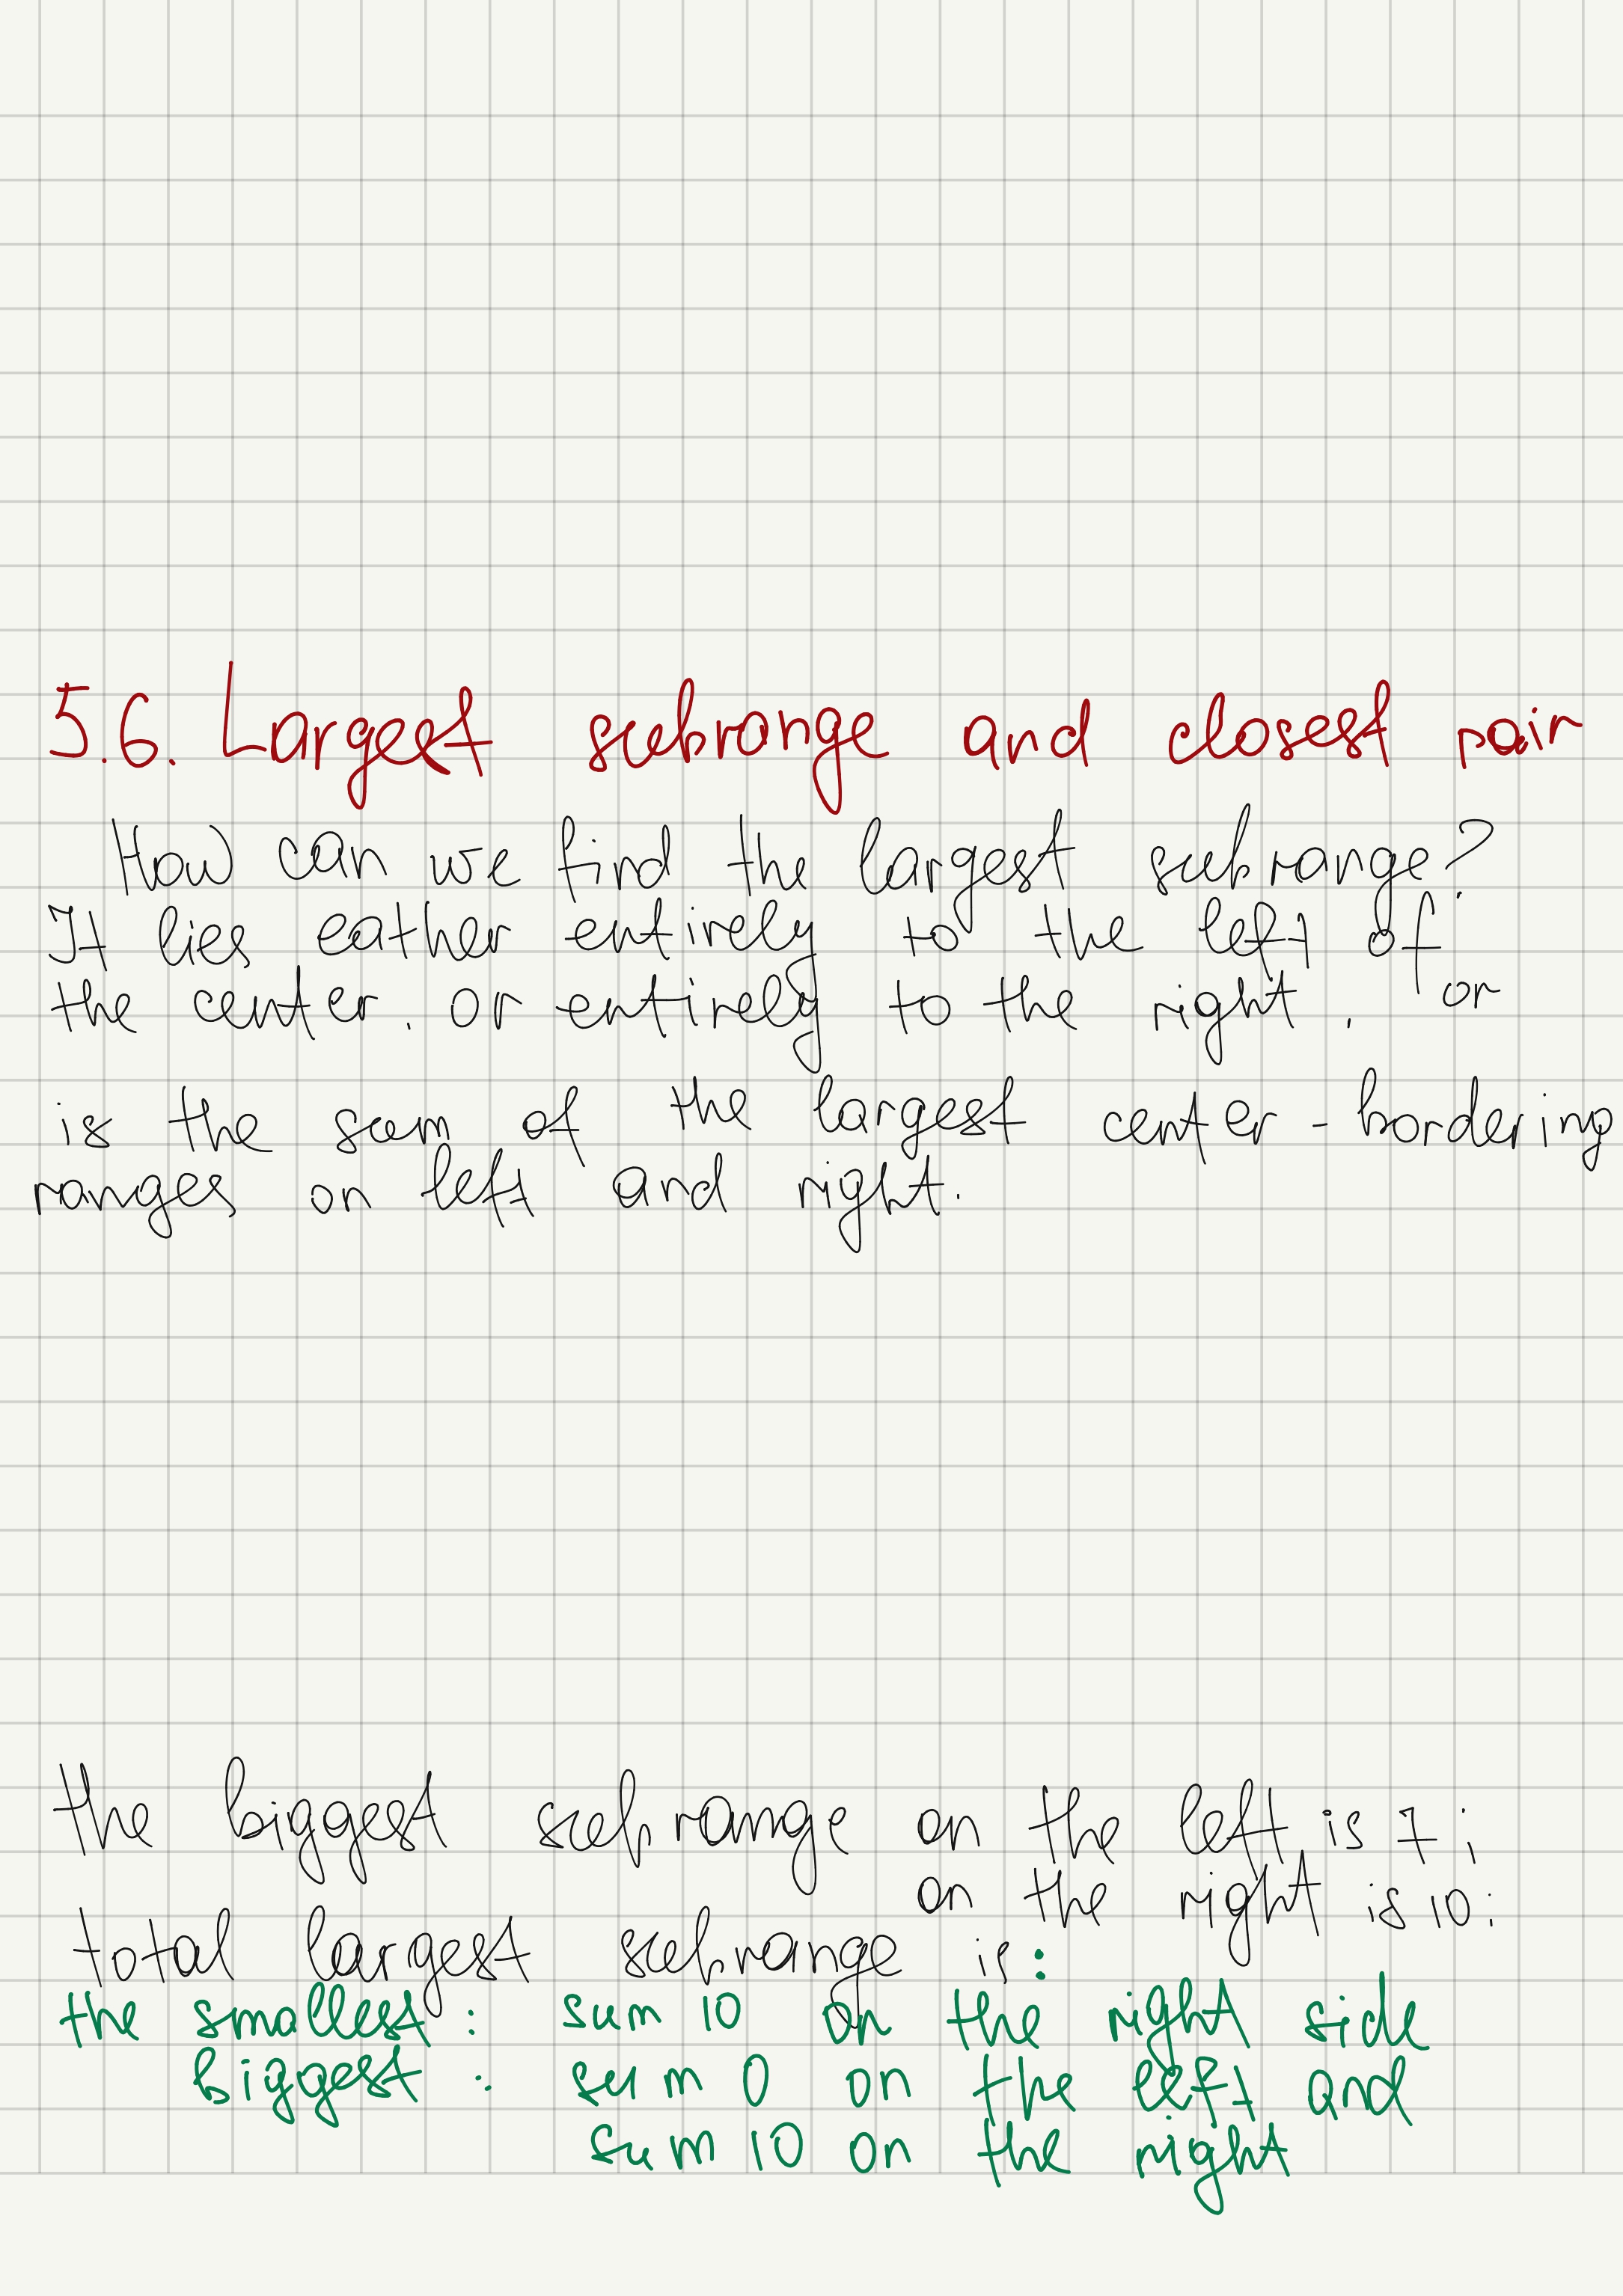 5.6. Largest subrange and closest pair
How can we find the largest subrange?
It lies eather entirely to the left of
the center. or entirely to the right. or
is the sum of the largest center-bordering
ranges on left and right.
the biggest subrange on the left is 7;
on the right is 10;
total largest subrange is:
the smallest: sum 10 on the right side
biggest: sum 0 on the left and
sum 10 on the right